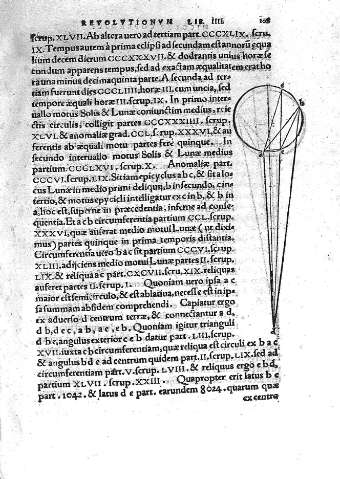 REVOLVTIONVM LIB. IIII. 108
scrup. XLVII. Ab altera uero ad tertiam part. CCCXLIX. scru.
IX. Tempus autem à prima eclipsi ad secundam est annorū equa
lium decem dierum CCCXXXVII. & dodrantis unius horæ se
cundum apparens tempus, sed ad exactam æqualitatem erat ho
ra una minus decimaquinta parte. A secunda ad ter-
tiam fuerunt dies horæ III. cum uncia, sed
tempore æquali horæ III. scrup. IX. In primo inter-
uallo motus Solis & Lunæ coniunctim medius, reie
ctis circulis, colligit partes scrup.
XLVI. & anomaliæ grad. CCL. scrup. XXXVI. & au
ferentis ab æquali motu partes fere quinque. In
secundo interuallo motus Solis & Lunæ medius
partium scrup. X. Anomaliæ part.
CCCVI. scrup. LIX. Sit iam epicyclus a b c, & sit a lo
cus Lunæ in medio primi deliquij, b in secundo, c in
tertio, & motus epicycli intelligatur ex c in b, & b in
a, hoc est, superne in præcedentia, inferne ad conse-
quentia. Et a c b circumferentia partium CCL. scrup.
XXXVI, quæ auferat medio motui Lunæ (ut dixi-
mus) partes quinque in prima temporis distantia.
Circumferentia uero b a c sit partium CCCVI. scrup.
adijciens medio motui Lunæ partes II. scrup.
LIX. & reliqua a c part. CXCVII. scru. XIX. reliquas
auferet partes II. scrup. I. Quoniam uero ipsa a c
maior est semicirculo, & est ablatiua, necesse est in ip-
sa summam absidem comprehendi. Capiatur ergo
ex aduerso d centrum terræ, & connectantur a d,
d b, d e c, a b, a e, e b. Quoniam igitur trianguli
d b e, angulus exterior c e b datur part. LIII. scrup.
XVII. iuxta c b circumferentiam, quæ reliqua est circuli ex b a c
& angulus b d e ad centrum quidem part. II. scrup. LIX. sed ad
circumferentiam part. V. scrup. LVIII. & reliquus ergo e b d,
partium XLVII. scrup. XXIII. Quapropter erit latus b e
part. 1042. & latus d e part. earundem 8024. quarum quæ
ex centro